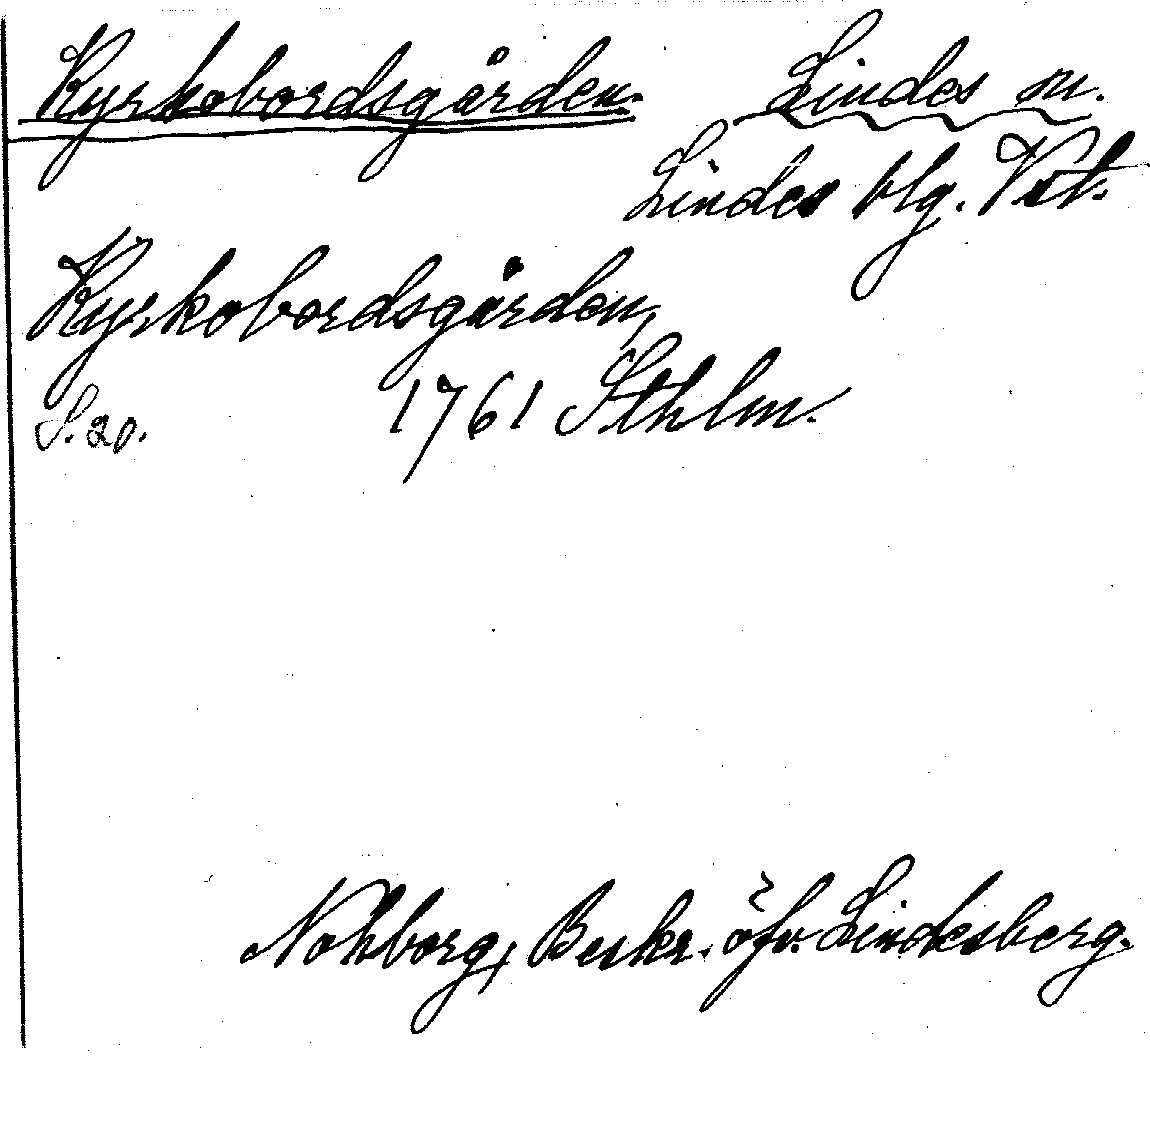 Kyrkobordsgården. Lindes sn.
Lindes blg. Vstl.
Kyrkobordsgården,
S. 20. 1761 Sthlm.
Nohborg, Beskr. öfv. Lindesberg.